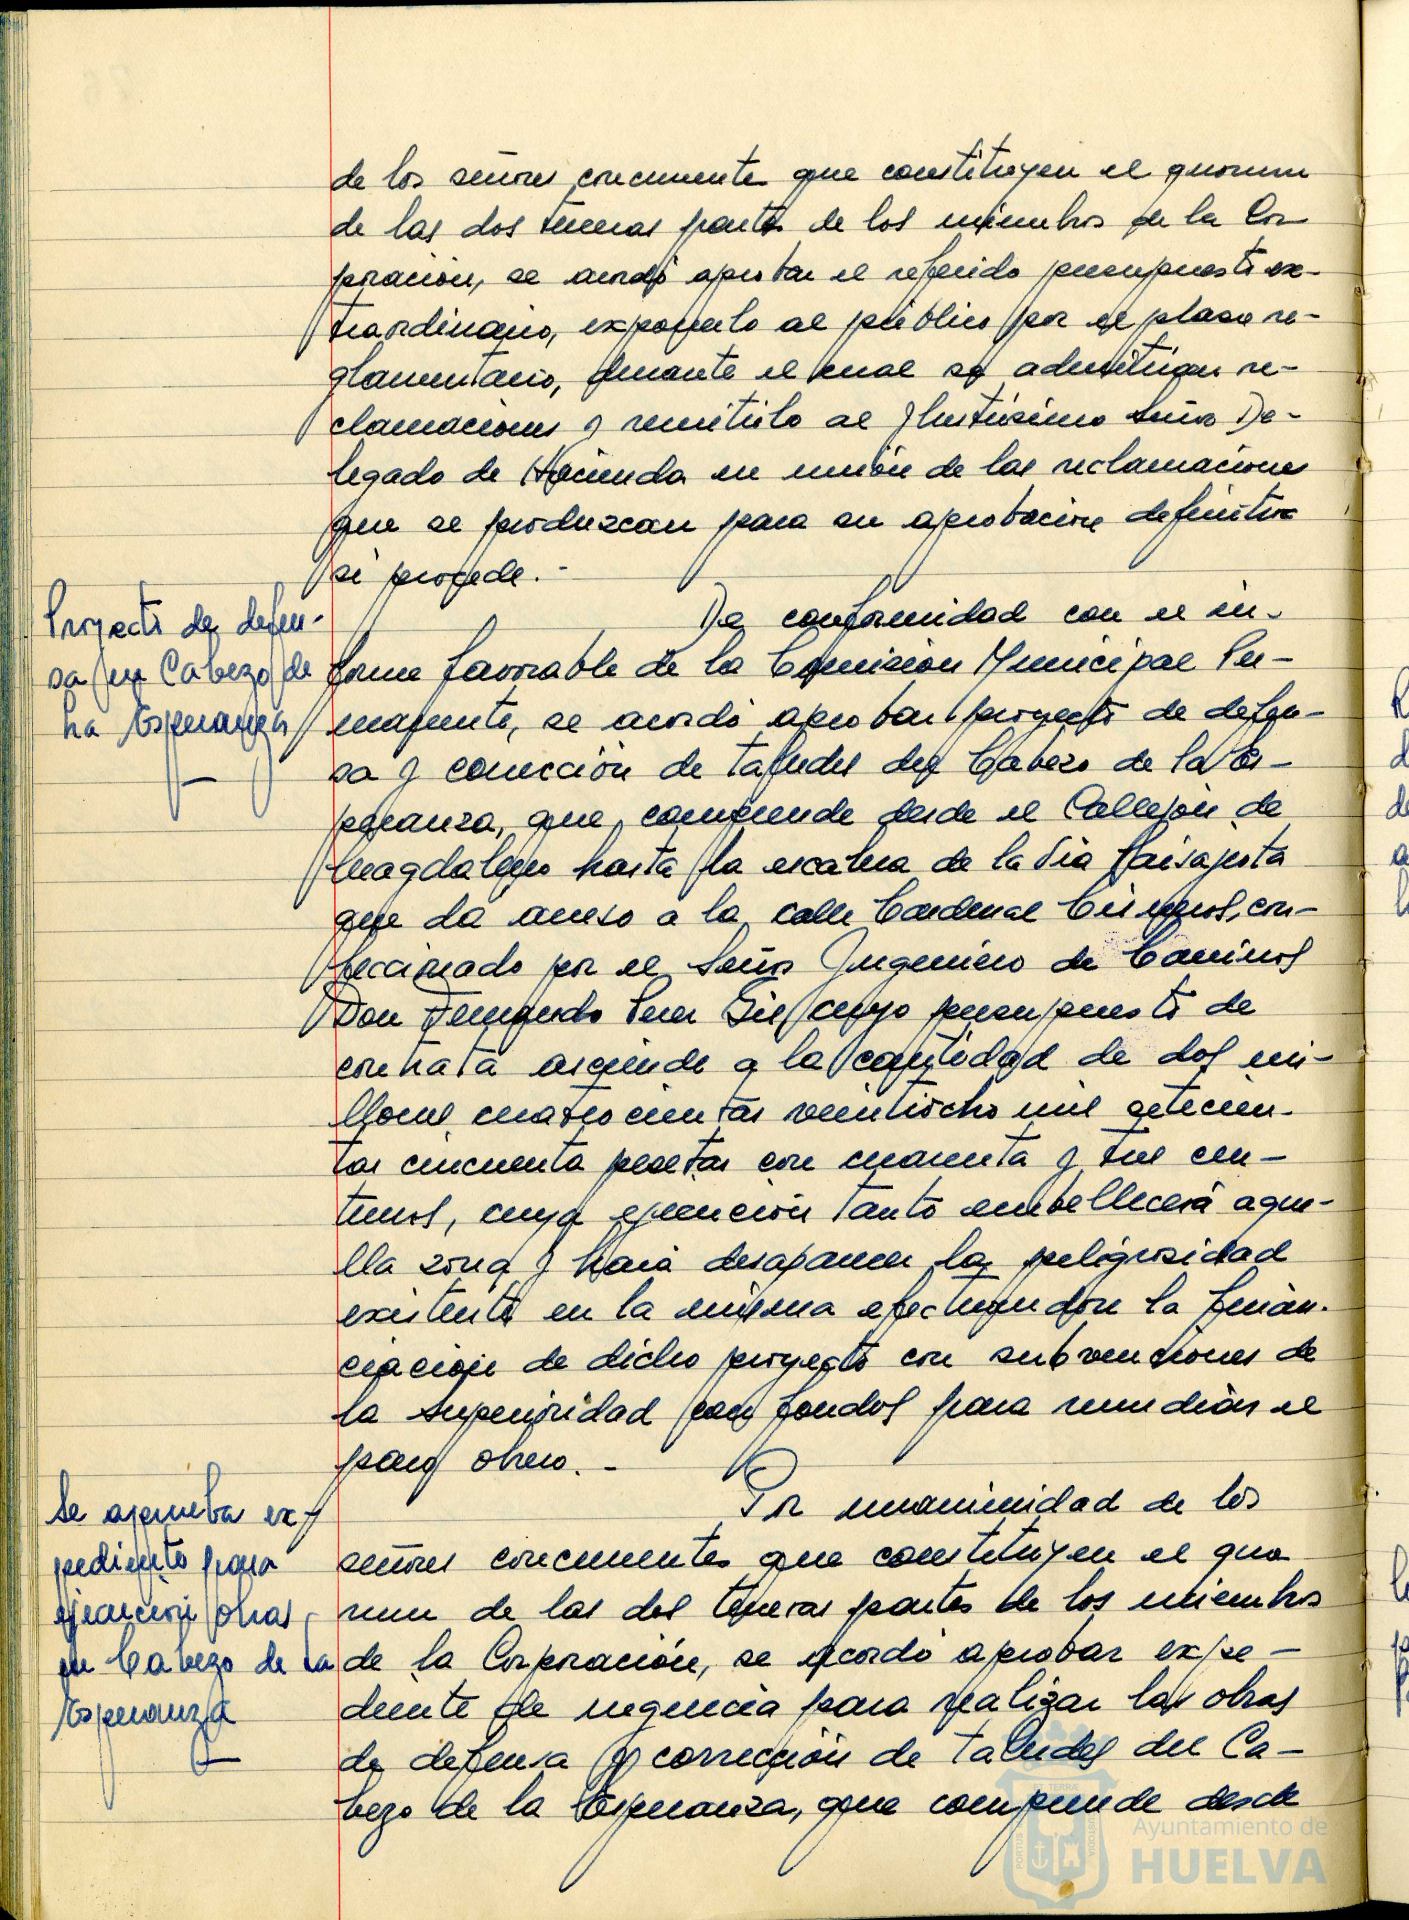 de los señores concurrentes que constituyen el quorum
de las dos terceras partes de los miembros de la Cor
poración, se acordó aprobar el referido presupuesto ex-
traordinario, exponerlo al público por el plazo re-
glamentario, durante el cual se admitirán re-
clamaciones y remitirlo al Ilustrísimo Señor De-
legado de Hacienda en unión de las reclamaciones
que se produzcan para su aprobación definitiva
si procede.-
Proyecto de defen-
sa en Cabezo de
la Esperanza
De conformidad con el in-
forme favorable de la Comisión Municipal Per-
manente, se acordó aprobar proyecto de defen-
sa y corrección de taludes del Cabezo de la Es-
peranza, que comprende desde el Callejón de
Magdaleno hasta la escalera de la Vía Paisajista
que da acceso a la calle Cardenal Cisneros, con-
feccionado por el Señor Ingeniero de Caminos
Don Fernando Perez Gil, cuyo presupuesto de
contrata asciende a la cantidad de dos mi-
llones cuatrocientas veintiocho mil setecien-
tas cincuenta pesetas con cuarenta y tres cen-
timos, cuya ejecución tanto embellecerá aque-
lla zona y hará desaparecer la peligrosidad
existente en la misma efectuandose la finan-
ciación de dicho proyecto con subvenciones de
la superioridad con fondos para remediar el
paro obrero.-
Se aprueba ex-
pediente para
ejecución obras
en Cabezo de la
Esperanza
Por unanimidad de los
señores concurrentes que constituyen el quo
rum de las dos terceras partes de los miembros
de la Corporación, se acordó aprobar expe-
diente de urgencia para realizar las obras
de defensa y corrección de taludes del Ca-
bezo de la Esperanza, que comprende desde
Ayuntamiento de
HUELVA